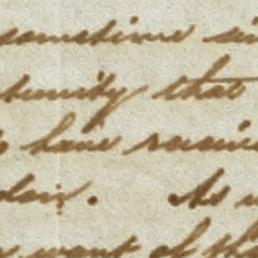 sometime si
tunity that
have receive
lair. As
want of th